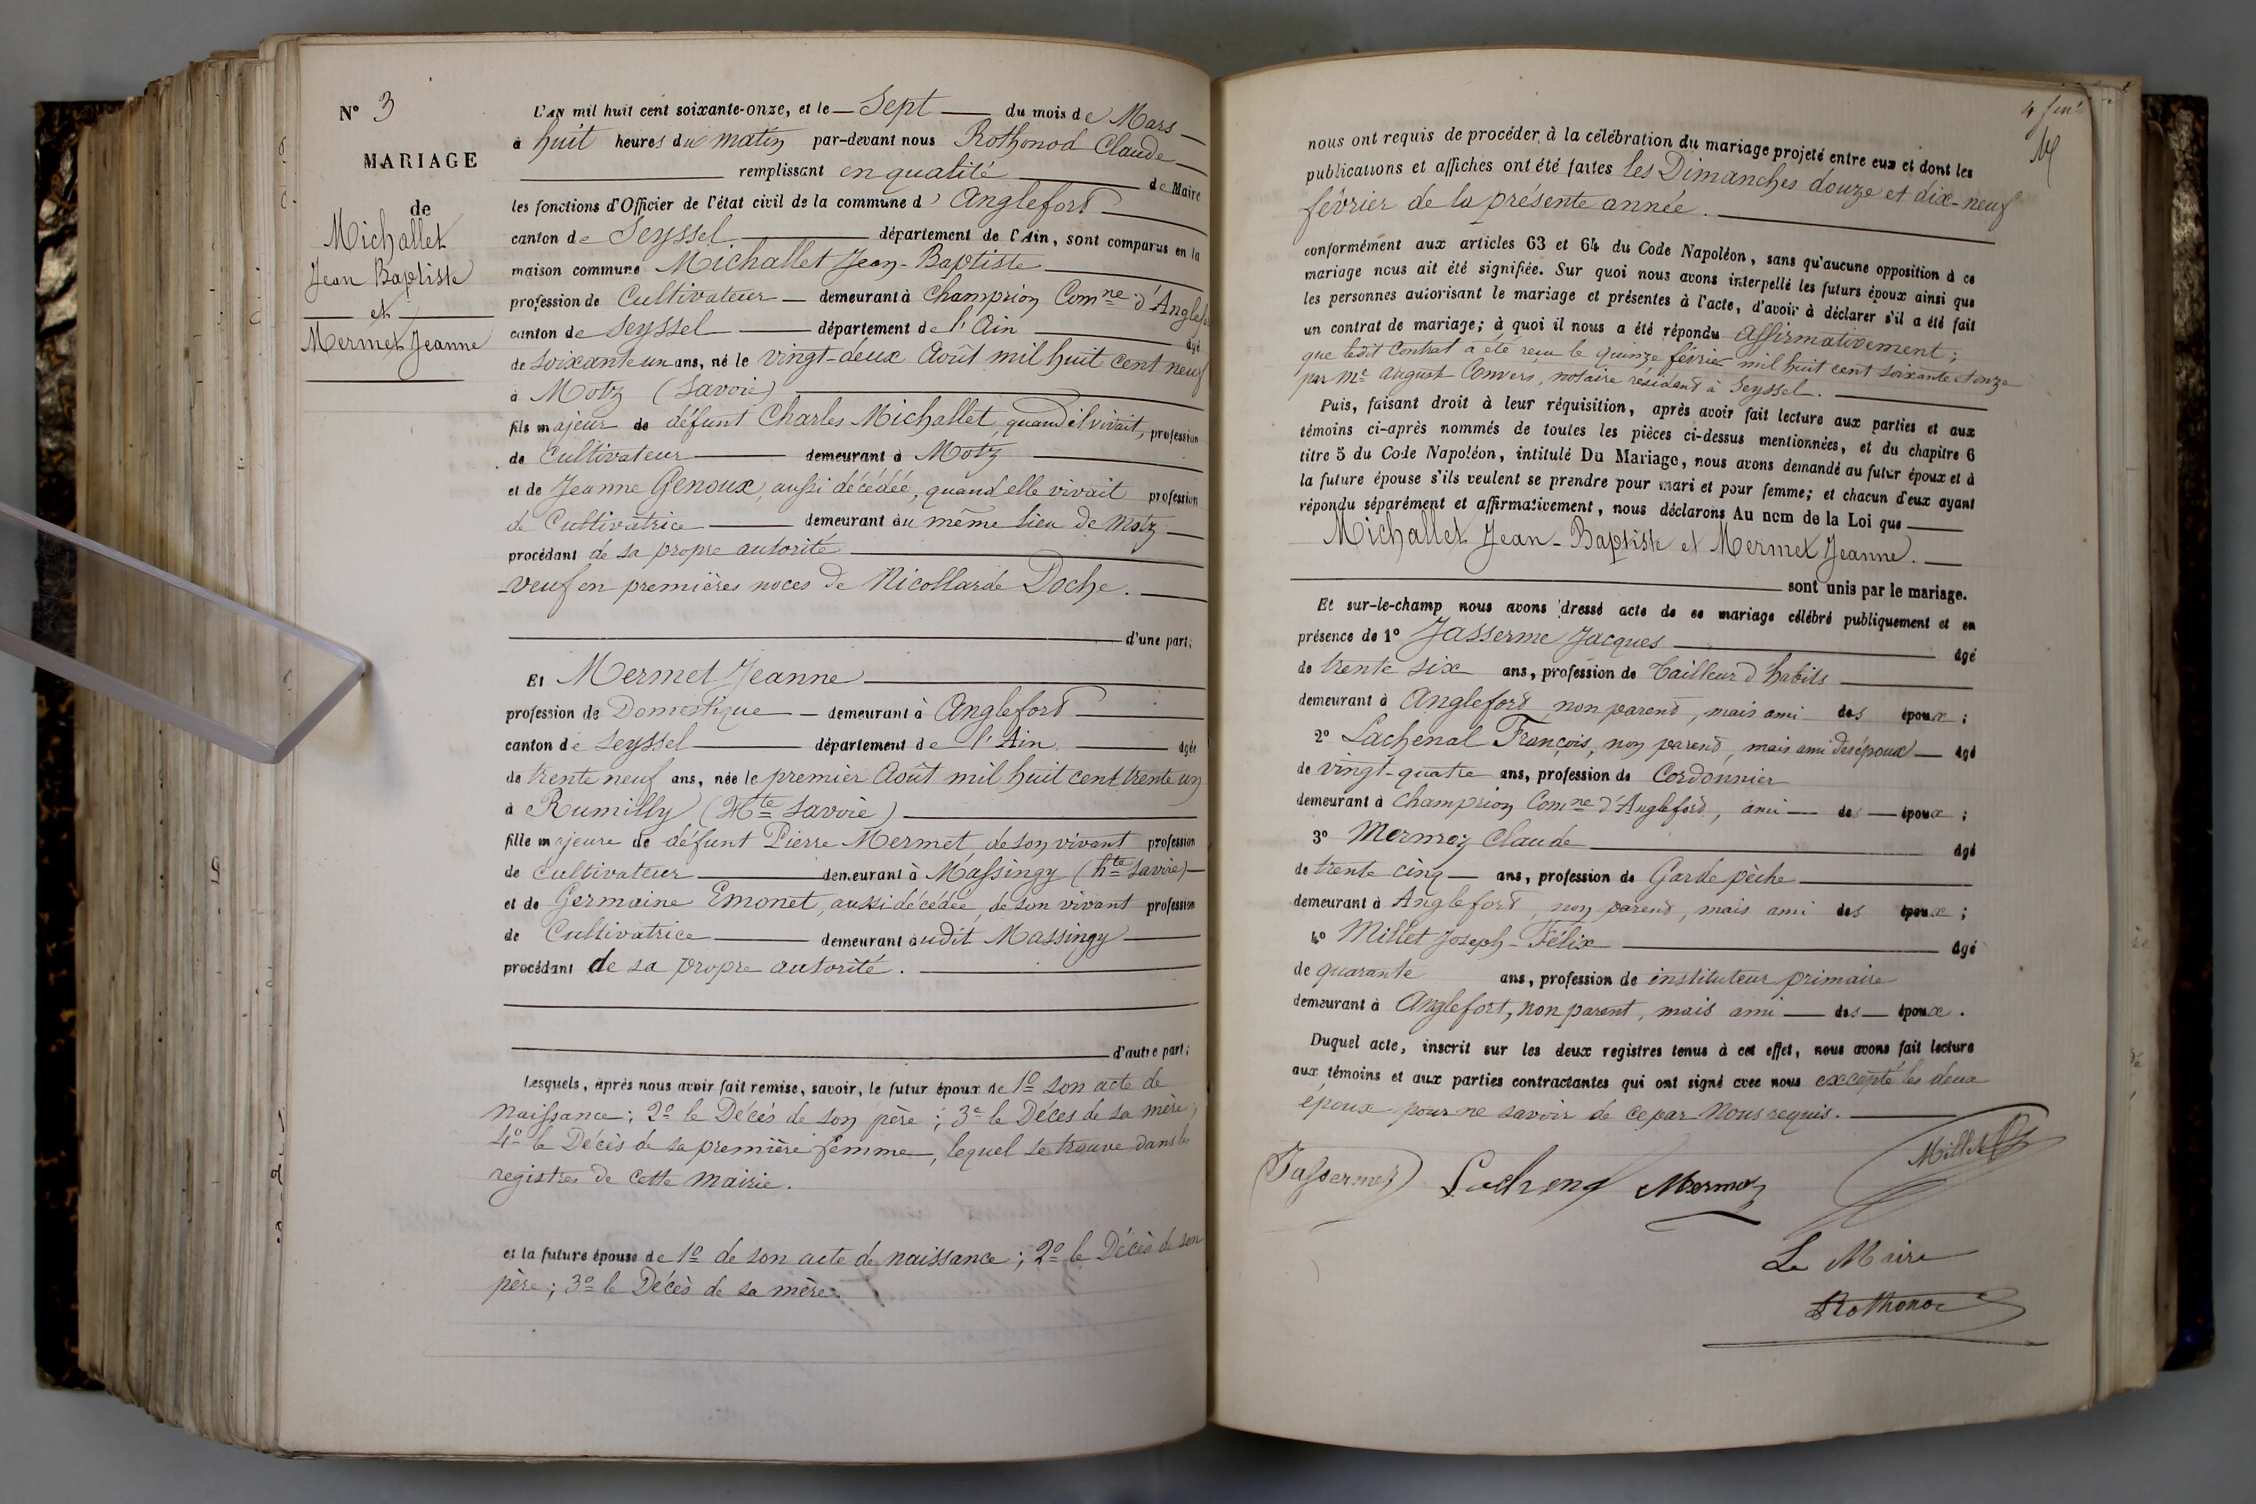 N° 3
MARIAGE
de
Michallet
Jean Baptiste
et
Mermet Jeanne
L'AN mil huit cent soixante-onze, et le Sept du mois de Mars
à huit heures du matin par-devant nous Rothonod Claude
remplissant en qualité de Maire
les fonctions d'Officier de l'état civil de la commune d'Anglefort
canton de Seyssel département de l'Ain, sont comparus en la
maison commune Michallet Jean-Baptiste
profession de Cultivateur demeurant à Champrion Comne d'Anglefort
canton de Seyssel département de l'Ain âgé
de soixante un ans, né le vingt-deux Août mil huit cent neuf
à Motz (Savoie)
fils majeur de défunt Charles Michallet, quand il vivait, profession
de Cultivateur demeurant à Motz
et de Jeanne Genoux, aussi décédée, quand elle vivait profession
de Cultivatrice demeurant au même lieu de Motz
procédant de sa propre autorité
veuf en premières noces de Nicollarde Doche.
d'une part;
Et Mermet Jeanne
profession de Domestique demeurant à Anglefort
canton de Seyssel département de l'Ain âgée
de trente neuf ans, née le premier Août mil huit cent trente un
à Rumilly (Hte Savoie)
fille majeure de défunt Pierre Mermet, de son vivant profession
de Cultivateur demeurant à Massingy (hte Savoie)
et de Germaine Emonet, aussi décédée, de son vivant profession
de Cultivatrice demeurant audit Massingy
procédant de sa propre autorité.
d'autre part;
Lesquels, après nous avoir fait remise, savoir, le futur époux de 1° son acte de
naissance; 2° le Décès de son père; 3° le Décès de sa mère;
4° le Décès de sa première femme, lequel se trouve dans les
registres de cette mairie.
et la future épouse de 1° de son acte de naissance; 2° le Décès de son
père; 3° le Décès de sa mère.
nous ont requis de procéder à la célébration du mariage projeté entre eux et dont les
publications et affiches ont été faites les Dimanches douze et dix-neuf
février de la présente année.
conformément aux articles 63 et 64 du Code Napoléon, sans qu'aucune opposition à ce
mariage nous ait été signifiée. Sur quoi nous avons interpellé les futurs époux ainsi que
les personnes autorisant le mariage et présentes à l'acte, d'avoir à déclarer s'il a été fait
un contrat de mariage; à quoi il nous a été répondu affirmativement;
que ledit Contrat a été reçu le quinze février mil huit cent soixante et onze
par Me August Convers, notaire résidant à Seyssel.
Puis, faisant droit à leur réquisition, après avoir fait lecture aux parties et aux
témoins ci-après nommés de toutes les pièces ci-dessus mentionnées, et du chapitre 6
titre 5 du Code Napoléon, intitulé Du Mariage, nous avons demandé au futur époux et à
la future épouse s'ils veulent se prendre pour mari et pour femme; et chacun d'eux ayant
répondu séparément et affirmativement, nous déclarons Au nom de la Loi que
Michallet Jean-Baptiste et Mermet Jeanne.
sont unis par le mariage.
Et sur-le-champ nous avons dressé acte de ce mariage célébré publiquement et en
présence de 1° Jasserme Jacques âgé
de trente six ans, profession de Tailleur d'habits
demeurant à Anglefort, non parent, mais ami des époux;
2° Lachenal François, non parent, mais ami des époux âgé
de vingt-quatre ans, profession de Cordonnier
demeurant à Champrion Comne d'Anglefort, ami des époux;
3° Mermoz Claude âgé
de trente cinq ans, profession de Garde pèche
demeurant à Anglefort, non parent, mais ami des époux;
4° Millet Joseph-Félix âgé
de quarante ans, profession de instituteur primaire
demeurant à Anglefort, non parent, mais ami des époux.
Duquel acte, inscrit sur les deux registres tenus à cet effet, nous avons fait lecture
aux témoins et aux parties contractantes qui ont signé avec nous excepté les deux
époux pour ne savoir de ce par Nous requis.
Millet
Jasserme Lachenal Mermoz
Le Maire
Rothonod